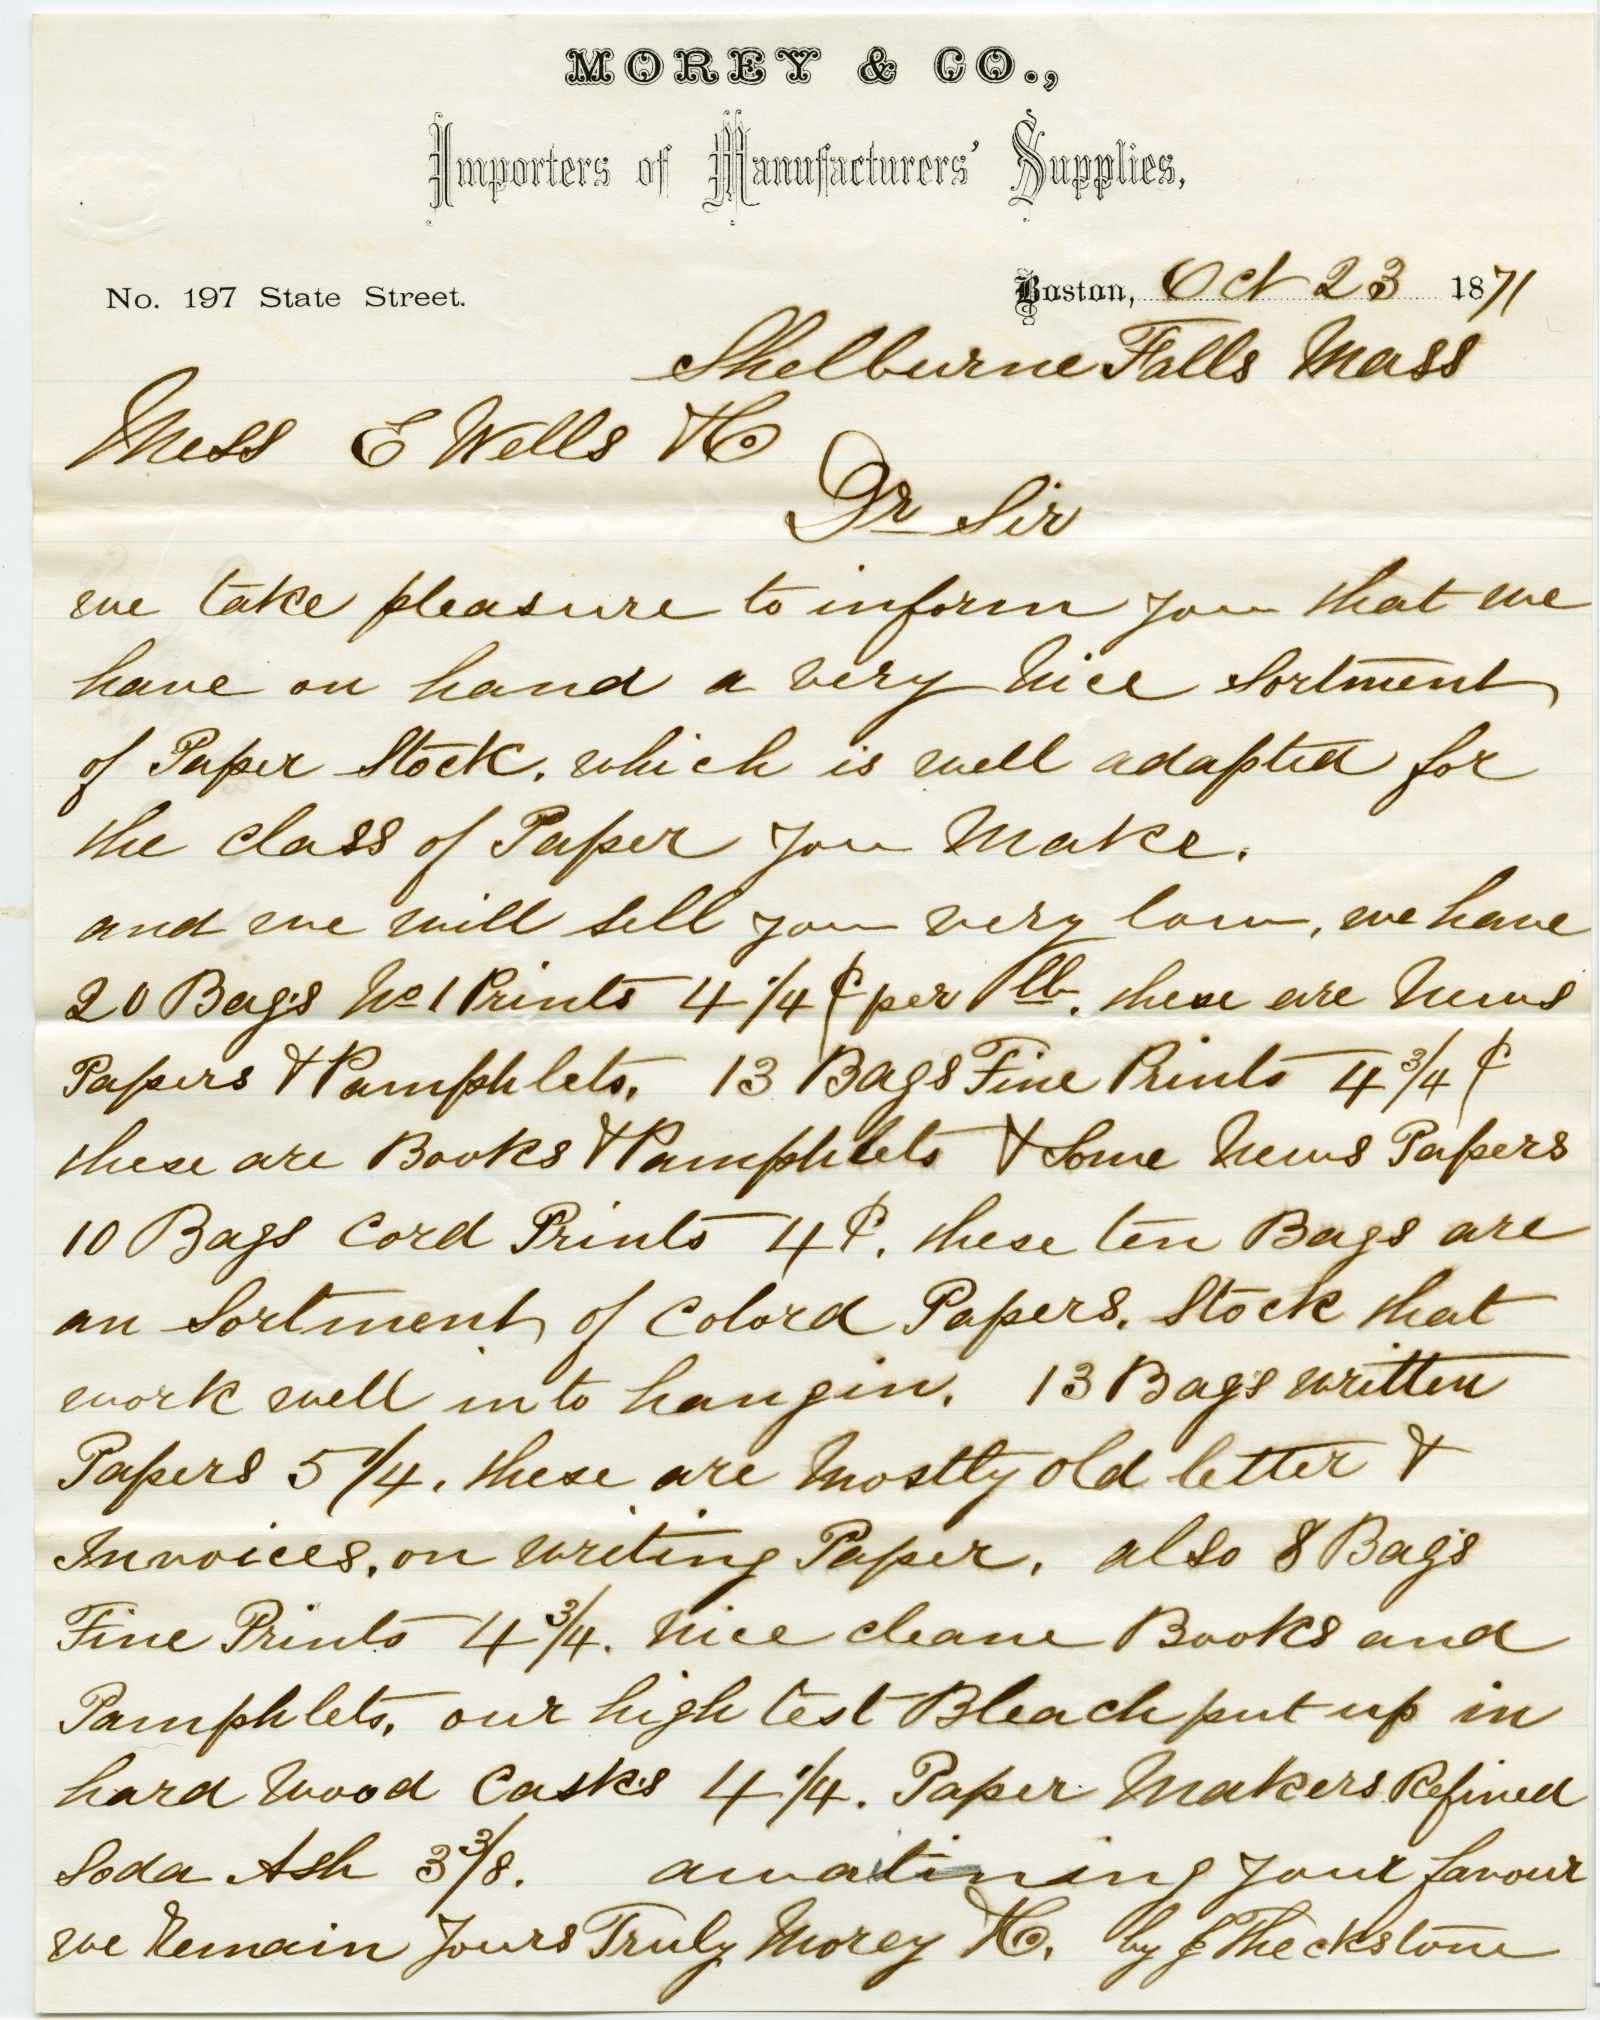 MOREY & CO.,
Importers of Manufacturers' Supplies,
No. 197 State Street.
Boston, Oct 23 1871
Shelburne Falls Mass
Mess E Wells & Co
Dr Sir
we take pleasure to inform you that we
have on hand a very Nice Sortment
of Paper Stock. which is well adapted for
the class of Paper you Make.
and we will sell you very low, we have
20 Bags No 1 Prints 4 1/4 ¢ per lb. these are News
Papers & Pamphlets. 13 Bags Fine Prints 4 3/4 ¢
these are Books & Pamphlets & Some News Papers
10 Bags Cord Prints 4 ¢. these ten Bags are
an Sortment of Colord Papers. Stock that
work well into hangin. 13 Bags written
Papers 5 1/4. these are Mostly old letter &
Invoices. on writing Paper. also 8 Bags
Fine Prints 4 3/4. Nice cleane Books and
Pamphlets. our high test Bleach put up in
hard Wood Casks 4 1/4. Paper Makers Refined
Soda Ash 3 3/8. awaitining your favour
we Remain Yours Truly Morey & Co. by J Theckstone